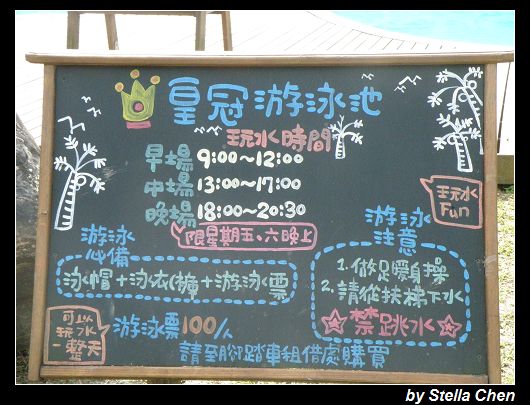 皇冠游泳池
玩水時間
早場 9:00~12:00
中場 13:00~17:00
晚場 18:00~20:30
限星期五、六晚上
玩水
Fun
游泳
必備
泳帽+泳衣(褲)+游泳票
游泳
注意
1.做足暖身操
2.請從扶梯下水
☆禁跳水☆
可以
玩水
一整天
游泳票100/人
請至腳踏車租借處購買
by Stella Chen